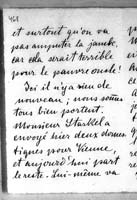 461
et surtout qu'on va
pas amputer la jambe,
car cela serait terrible
pour le pauvre oncle!
Ici il n'y a rien de
nouveau; nous sommes
tous bien portent.
Monsieur Starkel a
envoyé hier deux
tignes pour Vienne,
et aujourd'hui part
le reste. Lui-même va